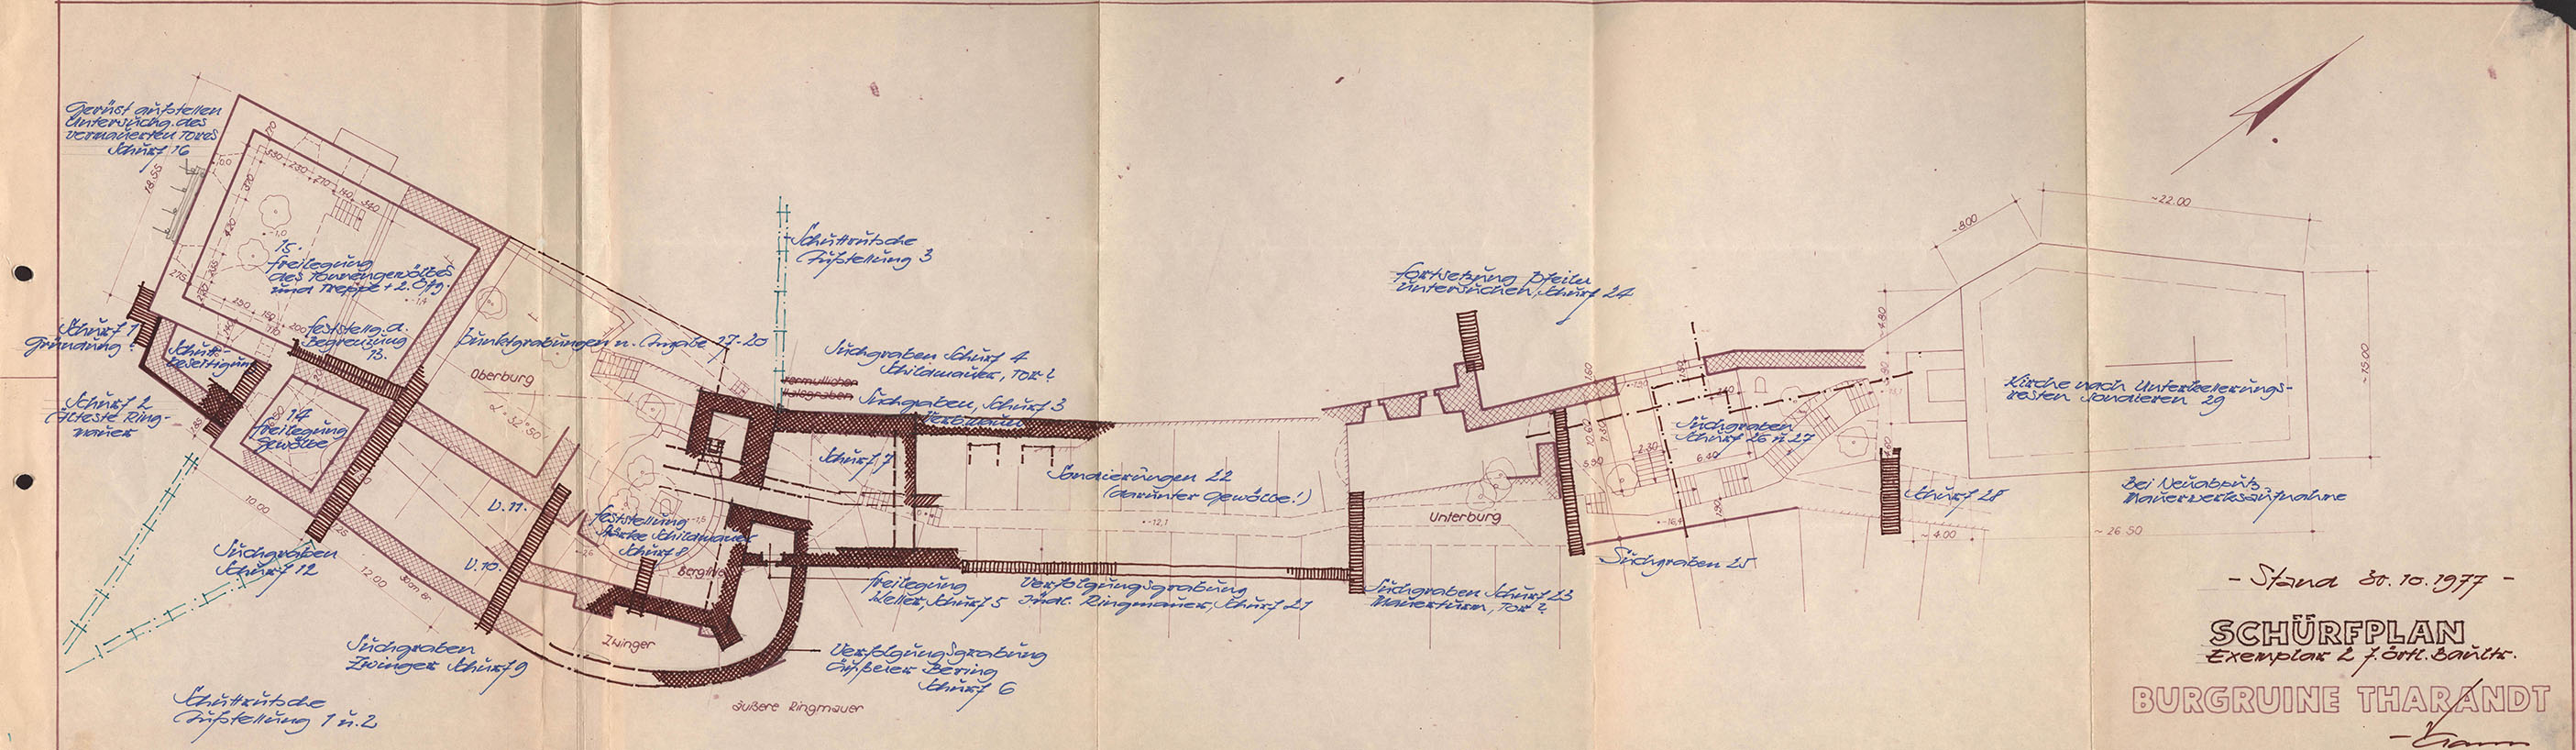 Gerüst aufstellen
Untersuchg. des
vermauerten Tores
Schurf 16
18.55
15.
Freilegung
des Tonnengewölbes
und Treppe + 2. Öffg.
Schurf 1
Gründung?
Schutt-
beseitigung
Feststellg. d.
Begrenzung
13.
Schurf 2
Älteste Ring-
mauer
14
Freilegung
Gewölbe
Punktgrabungen n. Angabe 17-20
Oberburg
Schuttrutsche
Aufstellung 3
Suchgraben Schurf 4
Schildmauer, Tor?
vermutlicher
Halsgraben
Suchgraben, Schurf 3
Schurf 7
Sondierungen 22
(darunter Gewölbe!)
-12,1
Fortsetzung Pfeiler
untersuchen, Schurf 24
Unterburg
Suchgraben
Schurf 26 u 27
6.40
Suchgraben 25
Schurf 28
~8.00
~22.00
~15.00
Kirche nach Unterkellerungs-
resten sondieren 29
Bei Neuabputz
Mauerwerksaufnahme
~4.00
~26.50
V.11.
V.10.
Feststellung
Stärke Schildmauer
Schurf 8
10.00
12.00
Suchgraben
Schurf 12
Suchgraben
Zwinger Schurf 9
Zwinger
Freilegung
Keller, Schurf 5
Verfolgungsgrabung
südl. Ringmauer, Schurf 21
Suchgraben Schurf 23
Mauerturm, Tor?
Verfolgungsgrabung
äußerer Bering
Schurf 6
äußere Ringmauer
Schuttrutsche
Aufstellung 1 u. 2
- Stand 30.10.1977 -
SCHÜRFPLAN
Exemplar 2 f. örtl. Baultr.
BURGRUINE THARANDT